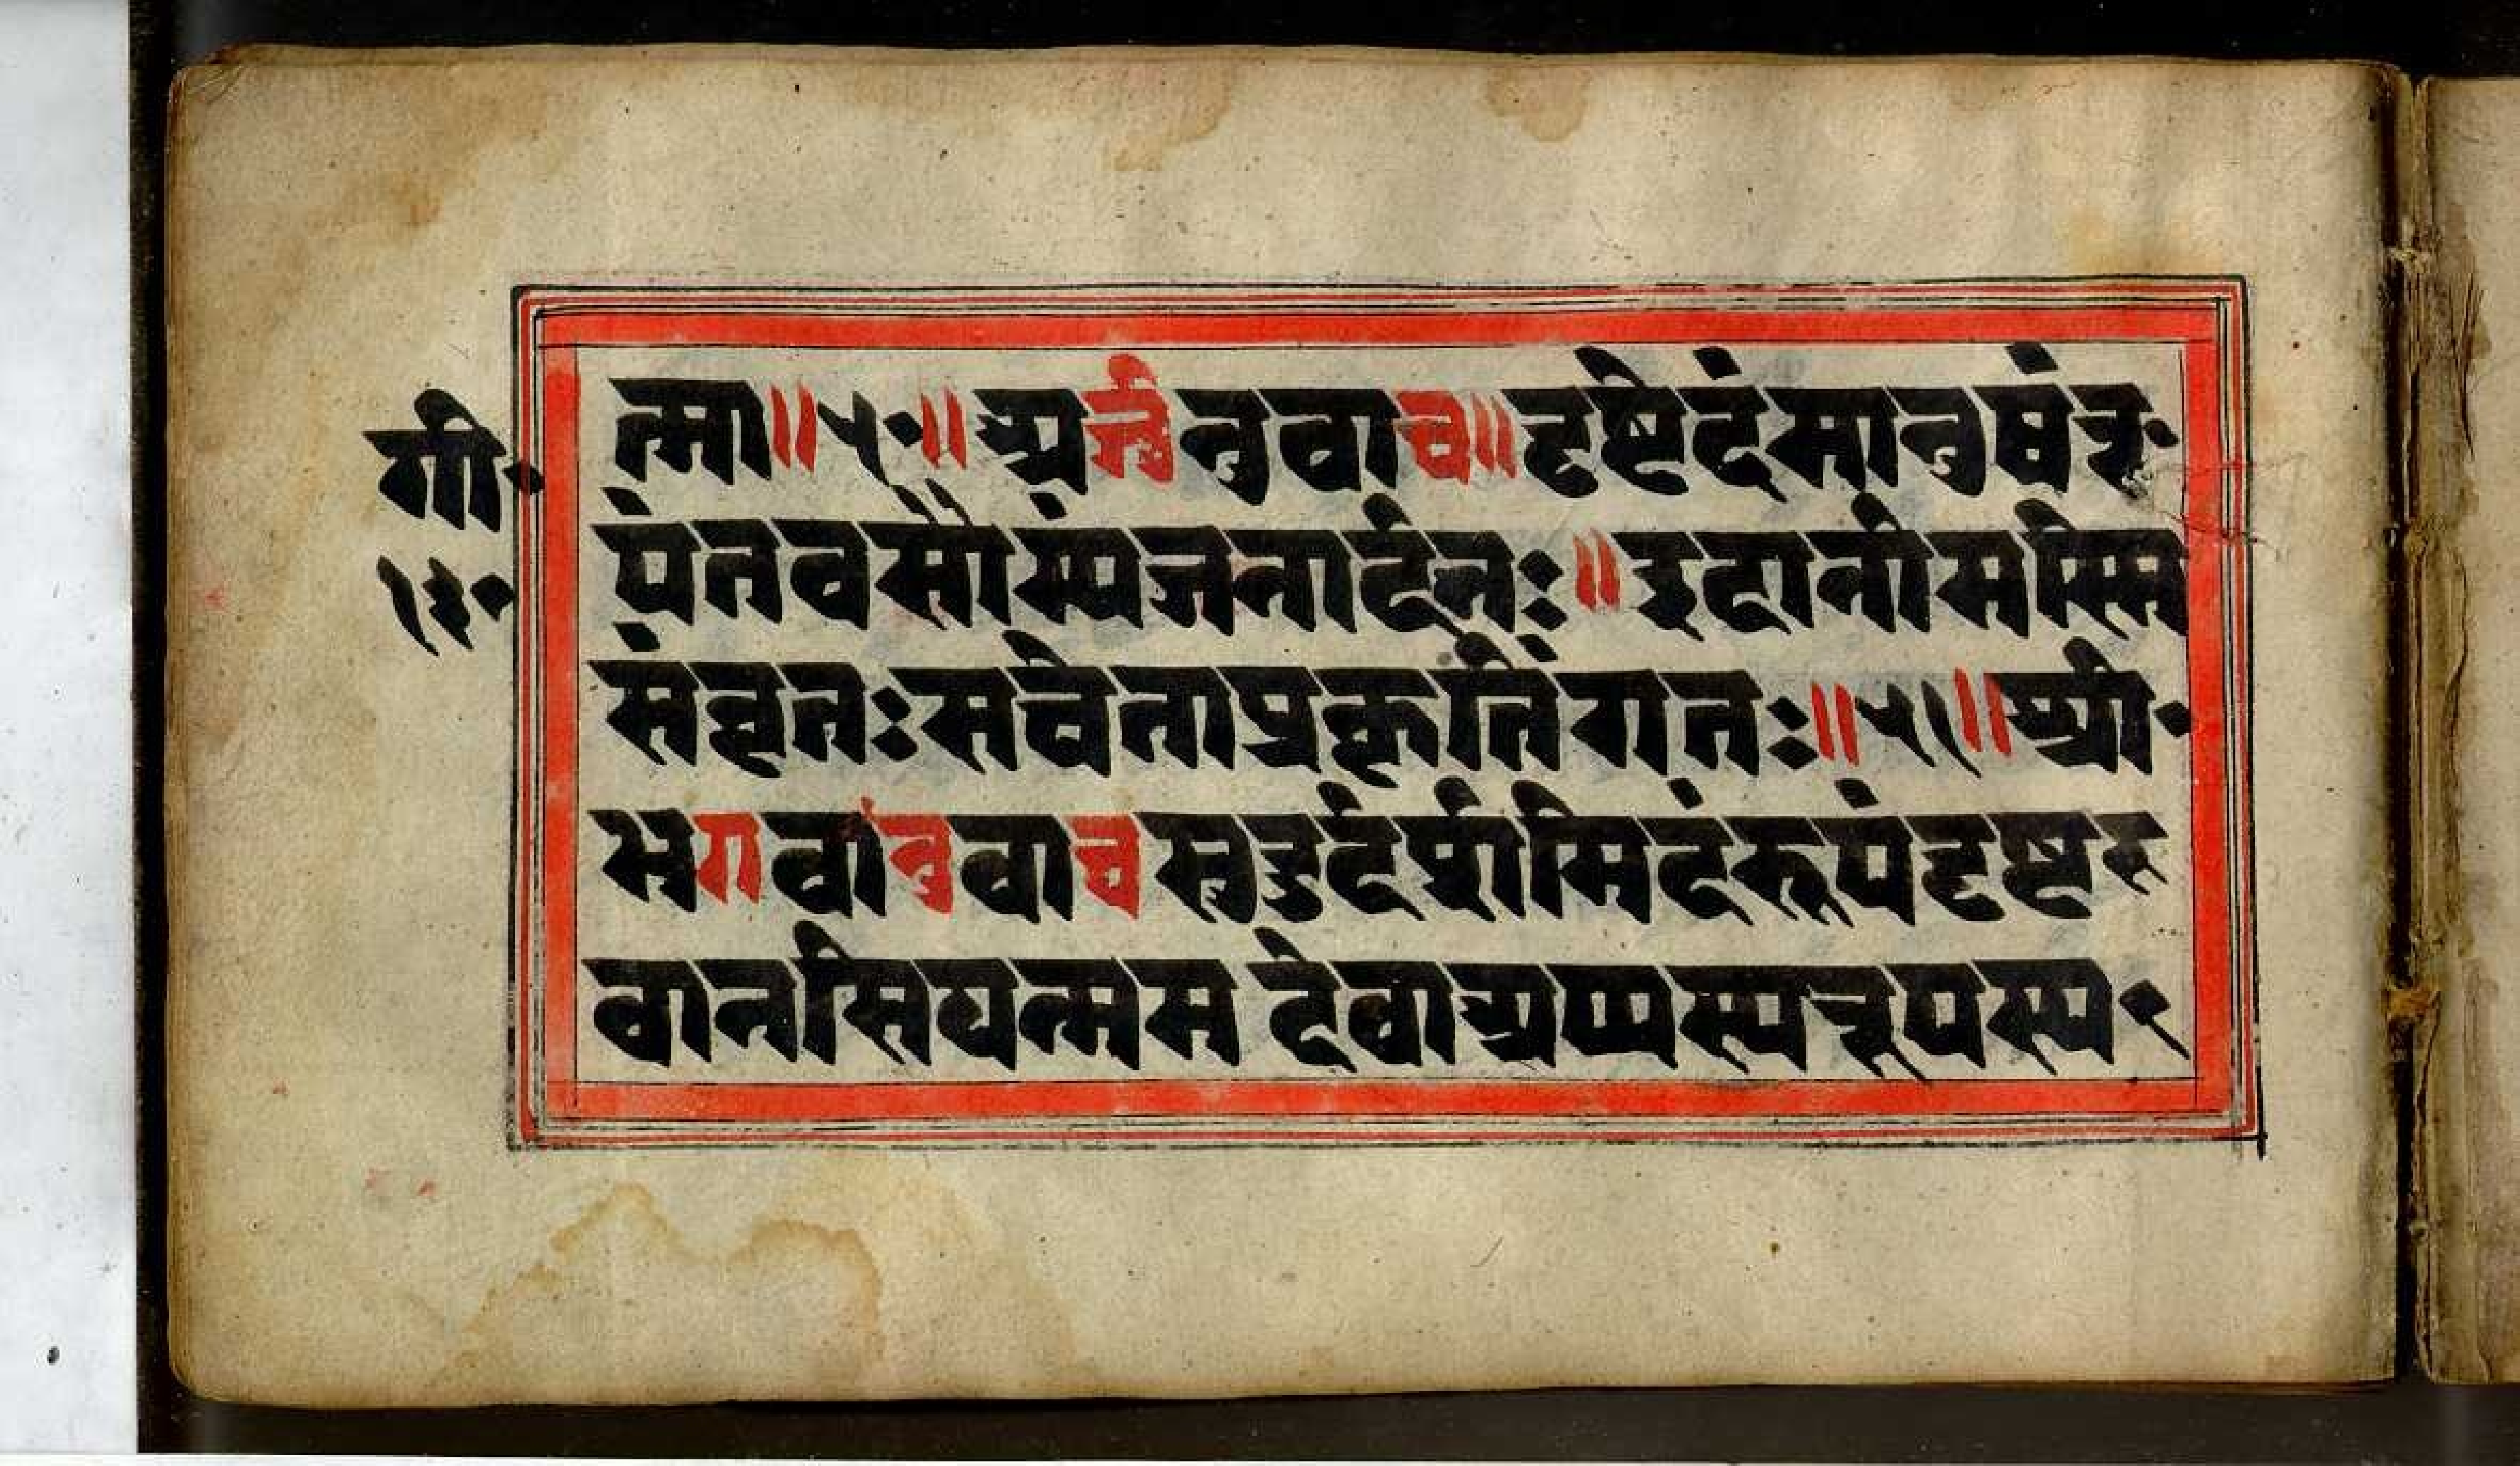 गी॰
१३०
त्मा॥५०॥अर्जुनउवाच॥दृष्ट्वेदंमानुषंरू
पंतवसौम्यंजनार्दनः॥इदानीमस्मि
संवृत्तःसचेताप्रकृतिंगतः॥५१॥श्री
भगवानुवाचसुदुर्दर्शमिदंरूपंदृष्टर
वानसियन्ममदेवाअप्यस्यरूपस्य